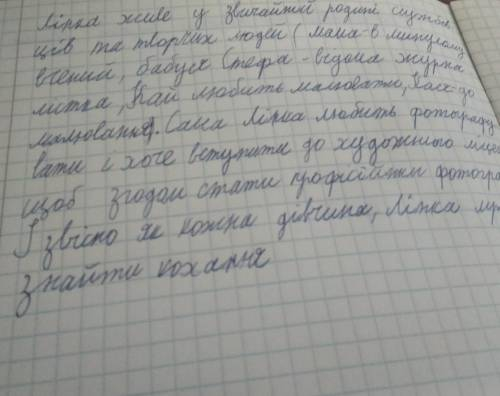 Ліпка живе у звичайній родині службов
ців та творчих людей (мама-в минулому
вчений, бабуся Стефа - відома журна
лістка, Кай любить малювати,
малювання). Сама Ліпка любить фотографу
вати і хоче вступити до художнього ліцею
щоб згодом стати професійним фотогра
І звісно як кожна дівчина, Ліпка мр
знайти кохання